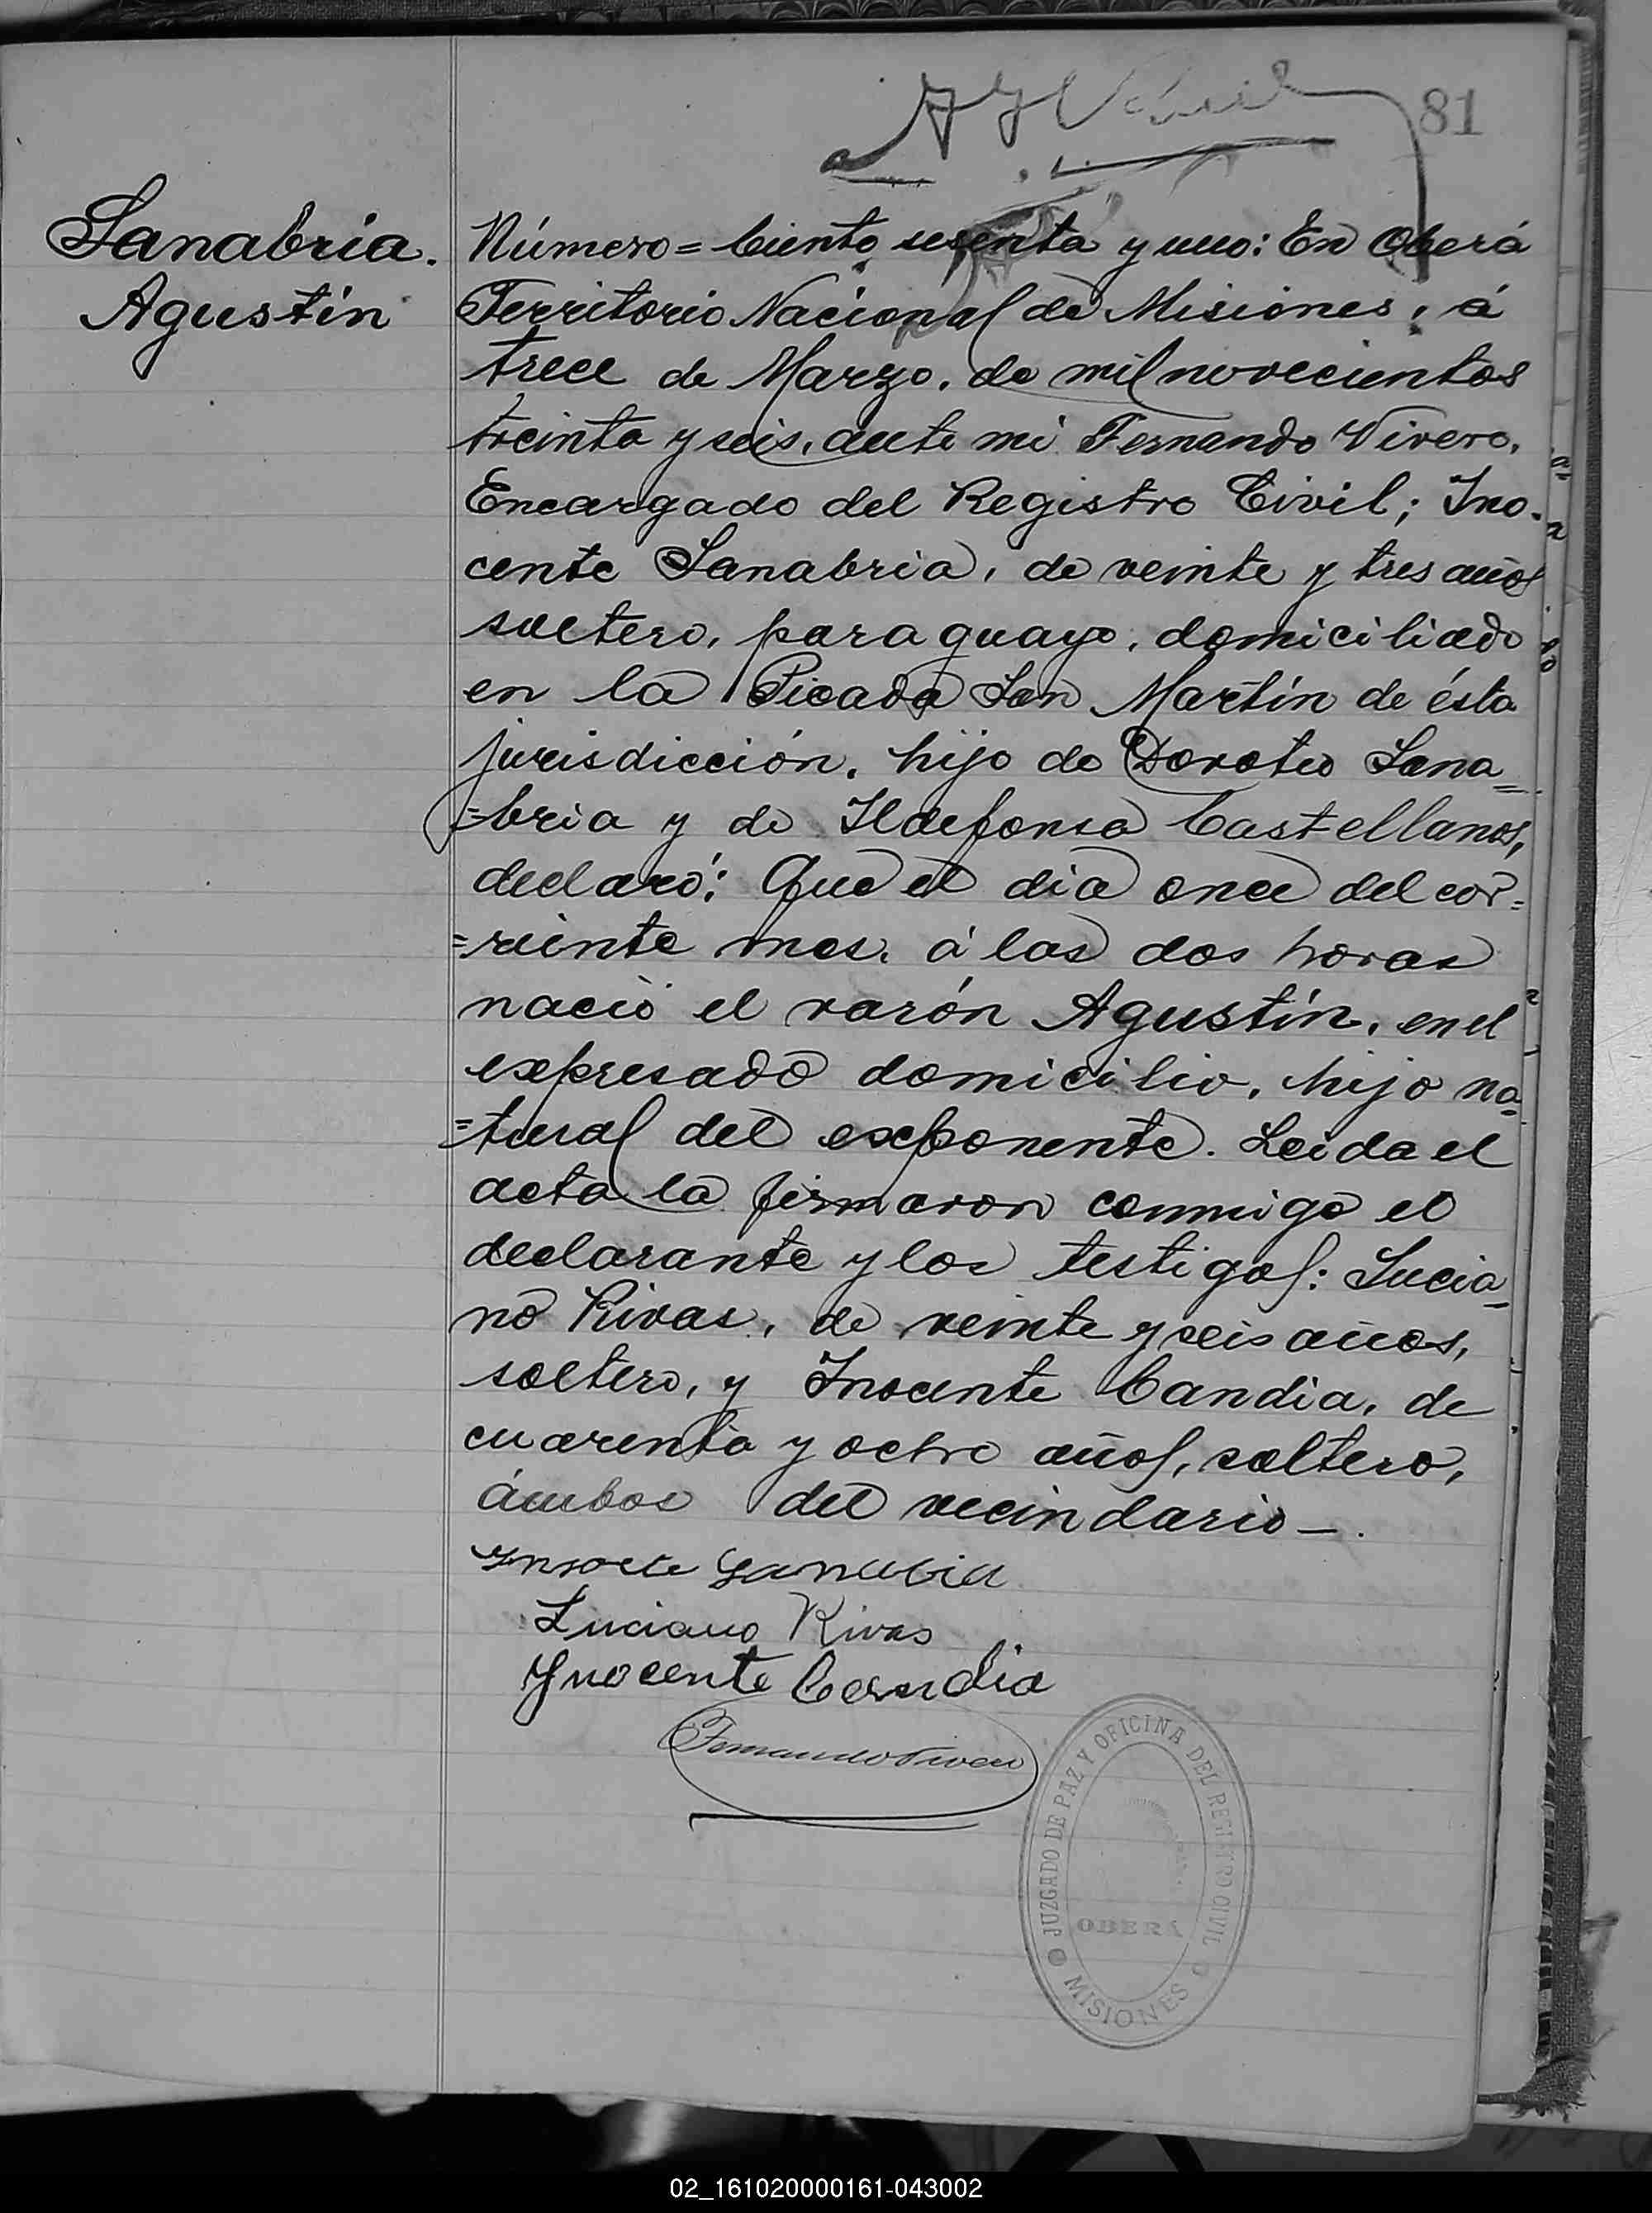 81
Sanabria.
Agustín
Número = Ciento sesenta y uno: En Oberá
Territorio Nacional de Misiones, á
trece de Marzo, de mil novecientos
treinta y seis, ante mi Fernando Vivero,
Encargado del Registro Civil; Ino-
cente Sanabria, de veinte y tres años
soltero, paraguayo, domiciliado
en la Picada San Martín de ésta
jurisdicción, hijo de Doroteo Sana=
=bria y de Ildefonsa Castellanos,
declaró: Que el dia once del cor=
=riente mes, á las dos horas
nació el varón Agustín, en el
expresado domicilio, hijo na=
=tural del exponente. Leida el
acta la firmaron conmigo el
declarante y los testigos: Lucia=
no Rivas, de veinte y seis años,
soltero, y Inocente Candia, de
cuarenta y ocho años, soltero,
ámbos del vecindario—.
Inocete Sanabria
Luciano Rivas
Ynocente Candia
Fernando Vivero
JUZGADO DE PAZ Y OFICINA DEL REGISTRO CIVIL
OBERÁ
MISIONES
02_161020000161-043002